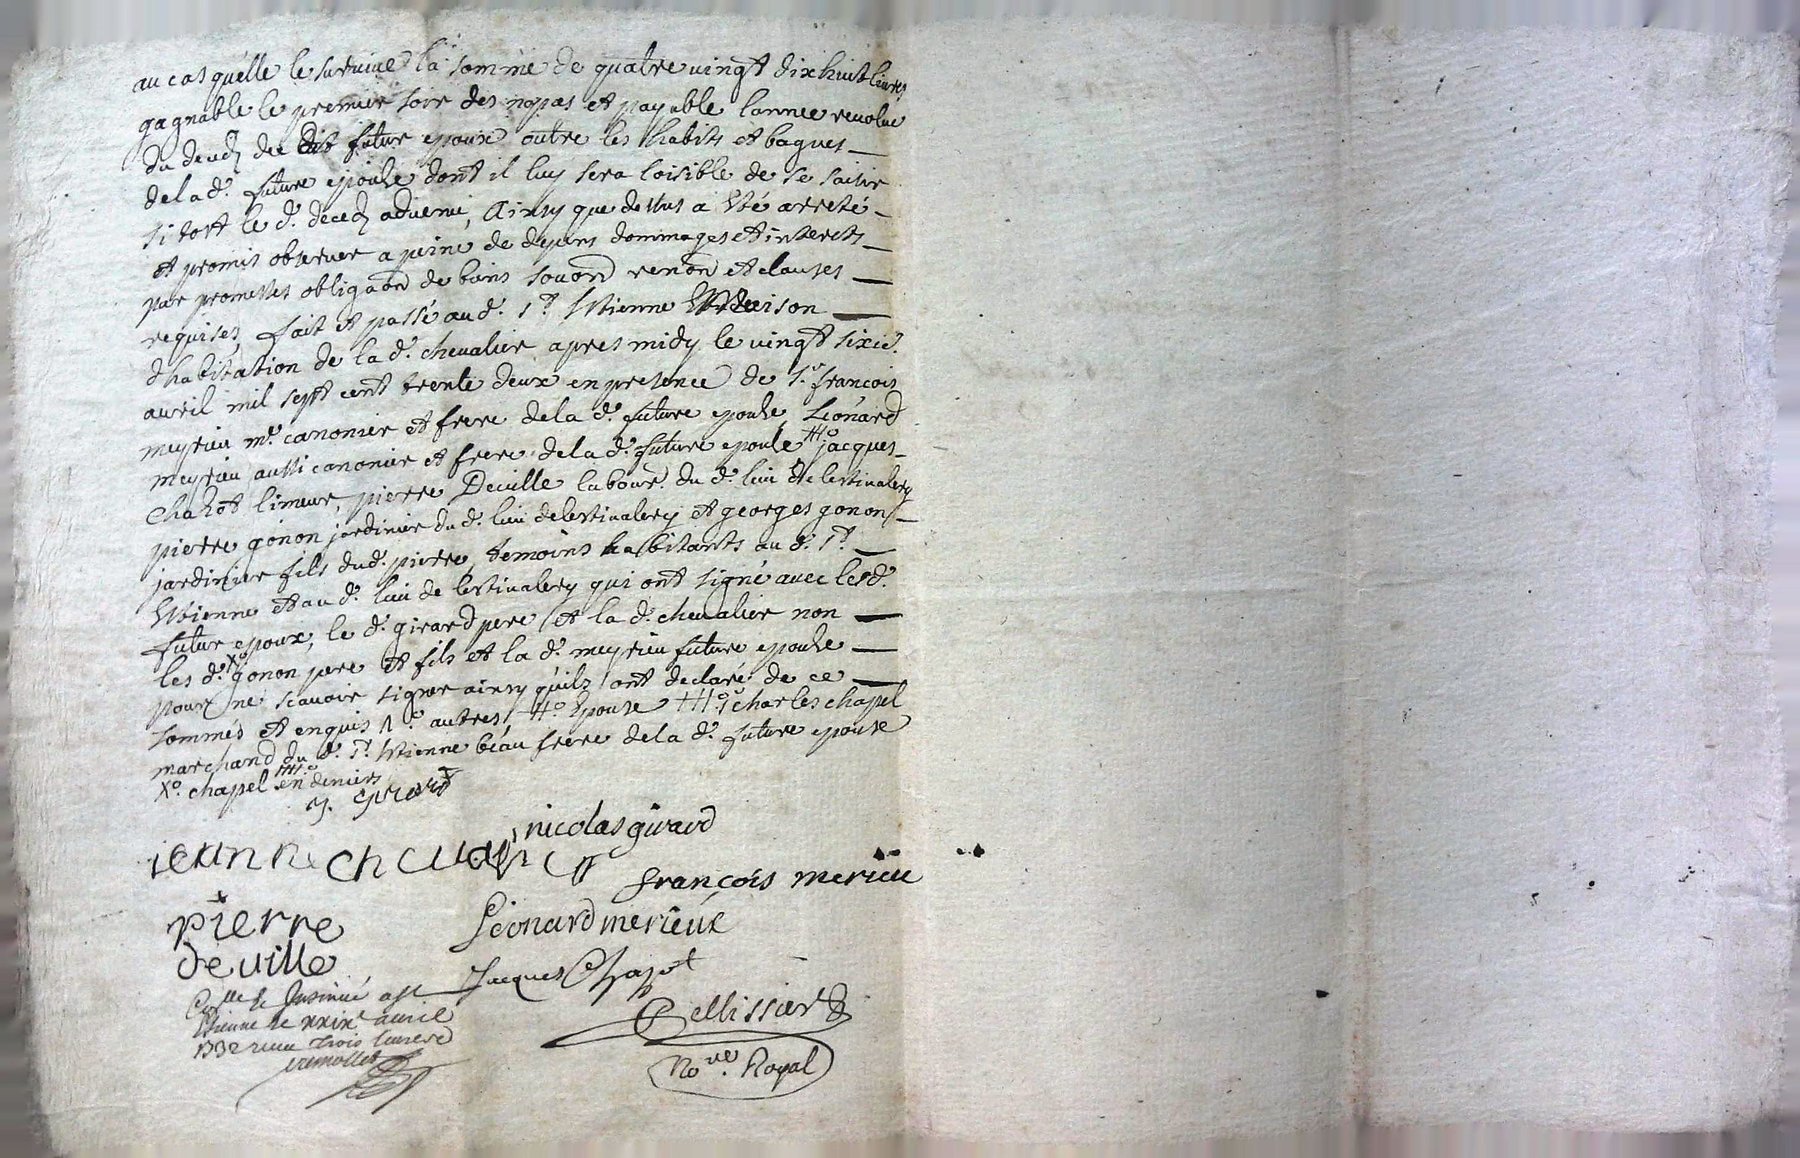 au cas quélle le surviue la somme de quatre uingt dix huit liures
gagnable le premier soir des nopas et payable lannee reuolue
du deudj de dit futur epoux outre les habits et bagues
de la d.e future epouse dont il luy sera loisible de se saisir
si tost le d.t decedj aduenu, Ainsy que dessus a esté arreté
et promis obseruer a peine de depens dommages et interets
par promesses obligaon de biens souon renon et clauses
requises, fait et passé au d.t s.t Estienne maison
dhabitation de la d.e cheualier apres midy le uingt sixie.
auril mil sept cent trente deux en presence de s.r francois
meyrieu m.e canonier et frere de la d.e future epouse, Leonard
meyrieu aussi canonier et frere de la d.e future epouse #o jacques
chazot limeur, pierre Deuille labour.r du d.t lieu de lestiualery
pierre gonon jardinier du d.t lieu de lestiualery et georges gonon
jardinier fils du d.t pierre, temoins habitants au d.t s.t
Estienne et au d.t lieu de lestiualery qui ont signé auec le d.t
futur epoux, le d.t girard pere et la d.e cheualier non
les d.ts Xo gonon pere et fils et la d.e meyrieu future epouse
pour ne scauoir signer ainsy qu'ils ont declaré de ce
sommés et enquis autres, #o Epouse ###o s.r charles chapel
marchand du d.t s.t Estienne béau frere de la d.e future epouse
Xo. chapel ###o en deniers
J. Girard
nicolas girard
ieanne cheualier
françois merieu
pierre
deuille
Léonard merieux
Jacques Chazot
Con.lle & Insinué a st
Etienne le xxixe auril
1732 receu trois liures
Pellissier
No.re Royal